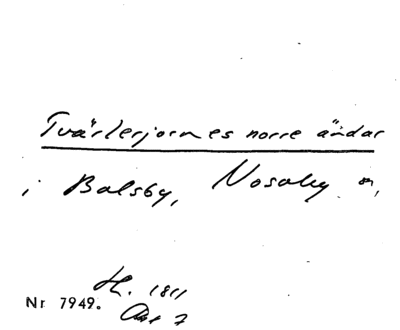 Tvärlerjornes norre ändar
i Balsby, Nosaby sn,
H. 1811
Nr 7949. Akt 7